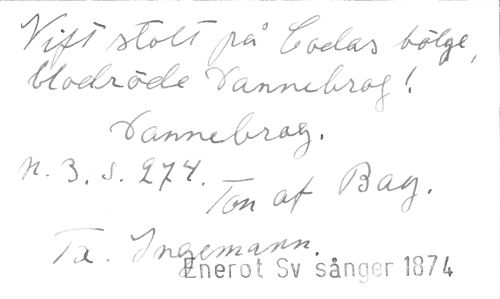 Vift stolt på Codas bölge,
blodröde Dannebrog!
Dannebrog.
N. 3. s. 274.
Ton af Bay.
Tx. Ingemann.
Enerot Sv sånger 1874